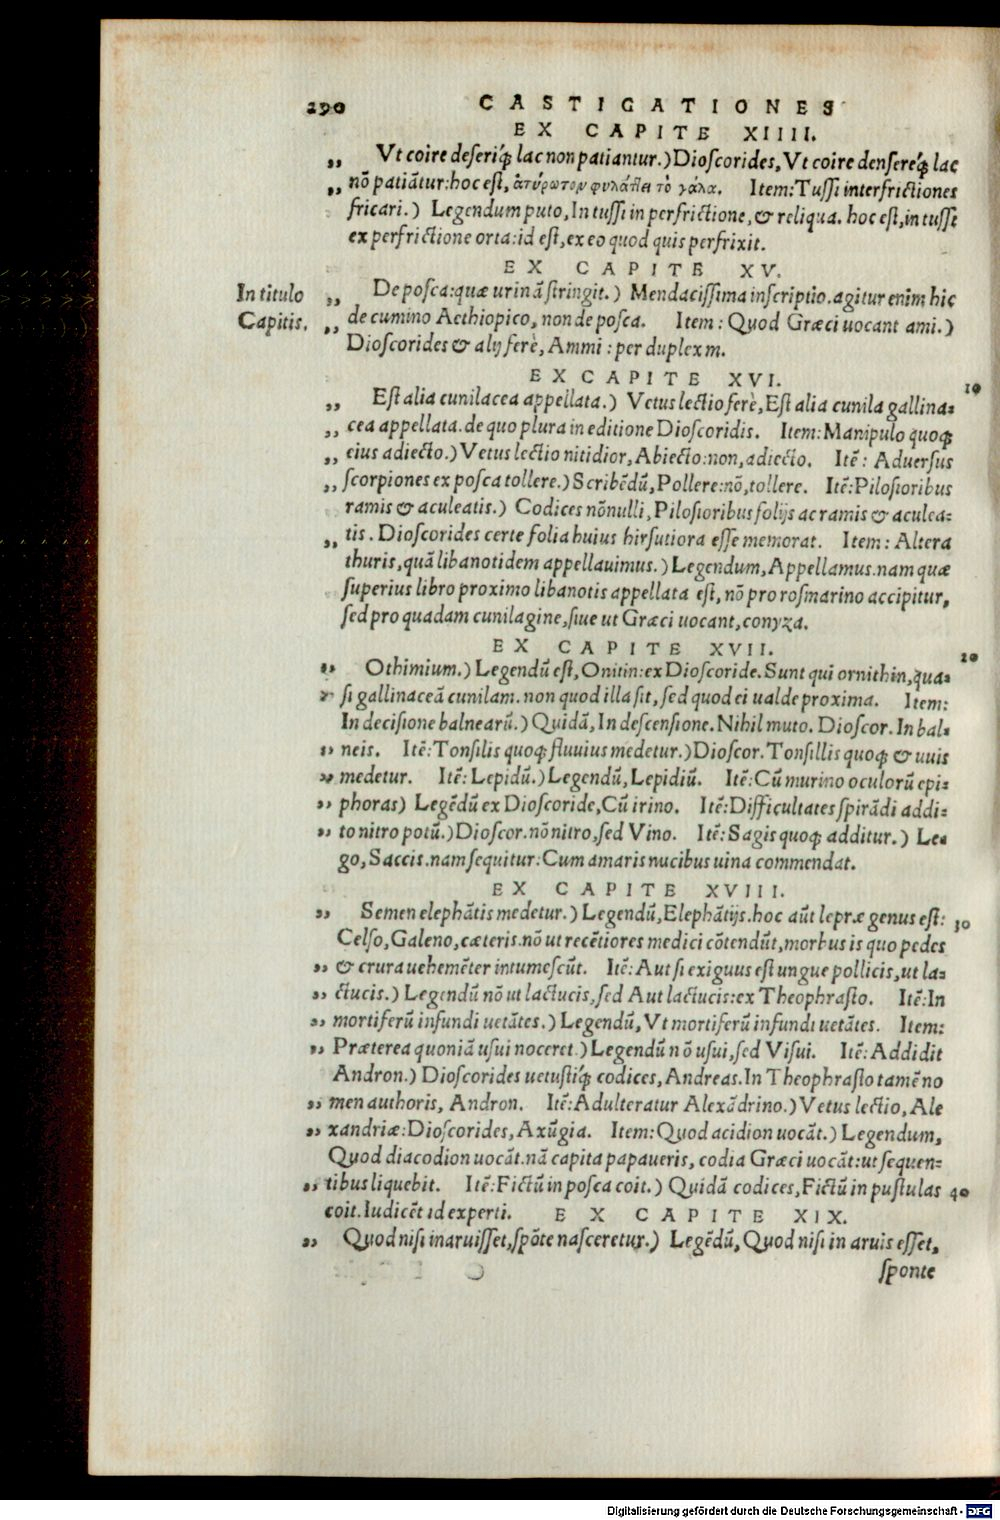 290 CASTIGATIONES
EX CAPITE XIIII.
,, Vt coire deseriq́; lac non patiantur.) Dioscorides, Vt coire densereq́; lac
,, nō patiātur: hoc est, ἀτύρωτον φυλάττει τὸ γάλα. Item: Tussi interfrictiones
fricari.) Legendum puto, In tussi in perfrictione, & reliqua. hoc est, in tusse
ex perfrictione orta: id est, ex eo quod quis perfrixit.
EX CAPITE XV.
In titulo ,, De posca: quæ urinā stringit.) Mendacissima inscriptio. agitur enim hic
Capitis. ,, de cumino Aethiopico, non de posca. Item: Quod Græci uocant ami.)
Dioscorides & alij ferè, Ammi: per duplex m.
EX CAPITE XVI. 10
,, Est alia cunilacea appellata.) Vetus lectio ferè, Est alia cunila gallina=
,, cea appellata. de quo plura in editione Dioscoridis. Item: Manipulo quoq;
,, eius adiecto.) Vetus lectio nitidior, Abiecto: non, adiecto. Itē: Aduersus
,, scorpiones ex posca tollere.) Scribēdū, Pollere: nō, tollere. Itē: Pilosioribus
ramis & aculeatis.) Codices nōnulli, Pilosioribus folijs ac ramis & aculea=
,, tis. Dioscorides certe folia huius hirsutiora esse memorat. Item: Altera
thuris, quā libanotidem appellauimus.) Legendum, Appellamus. nam quæ
superius libro proximo libanotis appellata est, nō pro rosmarino accipitur,
sed pro quadam cunilagine, siue ut Græci uocant, conyza.
EX CAPITE XVII. 20
,, Othimium.) Legendū est, Onitin: ex Dioscoride. Sunt qui ornithin, qua=
,, si gallinaceā cunilam. non quod illa sit, sed quod ei ualde proxima. Item:
In decisione balnearū.) Quidā, In descensione. Nihil muto. Dioscor. In bal=
,, neis. Itē: Tonsilis quoq; fluuius medetur.) Dioscor. Tonsillis quoq; & uuis
,, medetur. Itē: Lepidū.) Legendū, Lepidiū. Itē: Cū murino oculorū epi=
,, phoras) Legēdū ex Dioscoride, Cū irino. Itē: Difficultates spirādi addi=
,, to nitro potū.) Dioscor. nō nitro, sed Vino. Itē: Sagis quoq; additur.) Le=
go, Saccis. nam sequitur: Cum amaris nucibus uina commendat.
EX CAPITE XVIII.
,, Semen elephātis medetur.) Legendū, Elephātijs. hoc aūt lepræ genus est: 30
Celso, Galeno, cæteris. nō ut recētiores medici cōtendūt, morbus is quo pedes
,, & crura uehemēter intumescūt. Itē: Aut si exiguus est ungue pollicis, ut la=
,, ctucis.) Legendū nō ut lactucis, sed Aut lactucis: ex Theophrasto. Itē: In
,, mortiferū infundi uetātes.) Legendū, Vt mortiferū infundi uetātes. Item:
,, Præterea quoniā usui noceret.) Legendū nō usui, sed Visui. Itē: Addidit
Andron.) Dioscorides uetustiq́; codices, Andreas. In Theophrasto tamē no
,, men authoris, Andron. Itē: Adulteratur Alexādrino.) Vetus lectio, Ale
,, xandriæ: Dioscorides, Axūgia. Item: Quod acidion uocāt.) Legendum,
Quod diacodion uocāt. nā capita papaueris, codia Græci uocāt: ut sequen=
,, tibus liquebit. Itē: Fictū in posca coit.) Quidā codices, Fictū in pustulas 40
coit. Iudicēt id experti. EX CAPITE XIX.
,, Quod nisi inaruisset, spōte nasceretur.) Legēdū, Quod nisi in aruis esset,
sponte
Digitalisierung gefördert durch die Deutsche Forschungsgemeinschaft - DFG